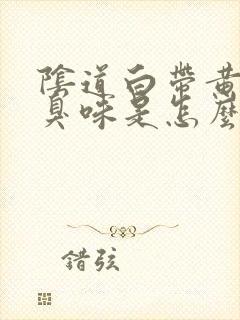 陰道白帶黃
臭味是怎麼
錯弦